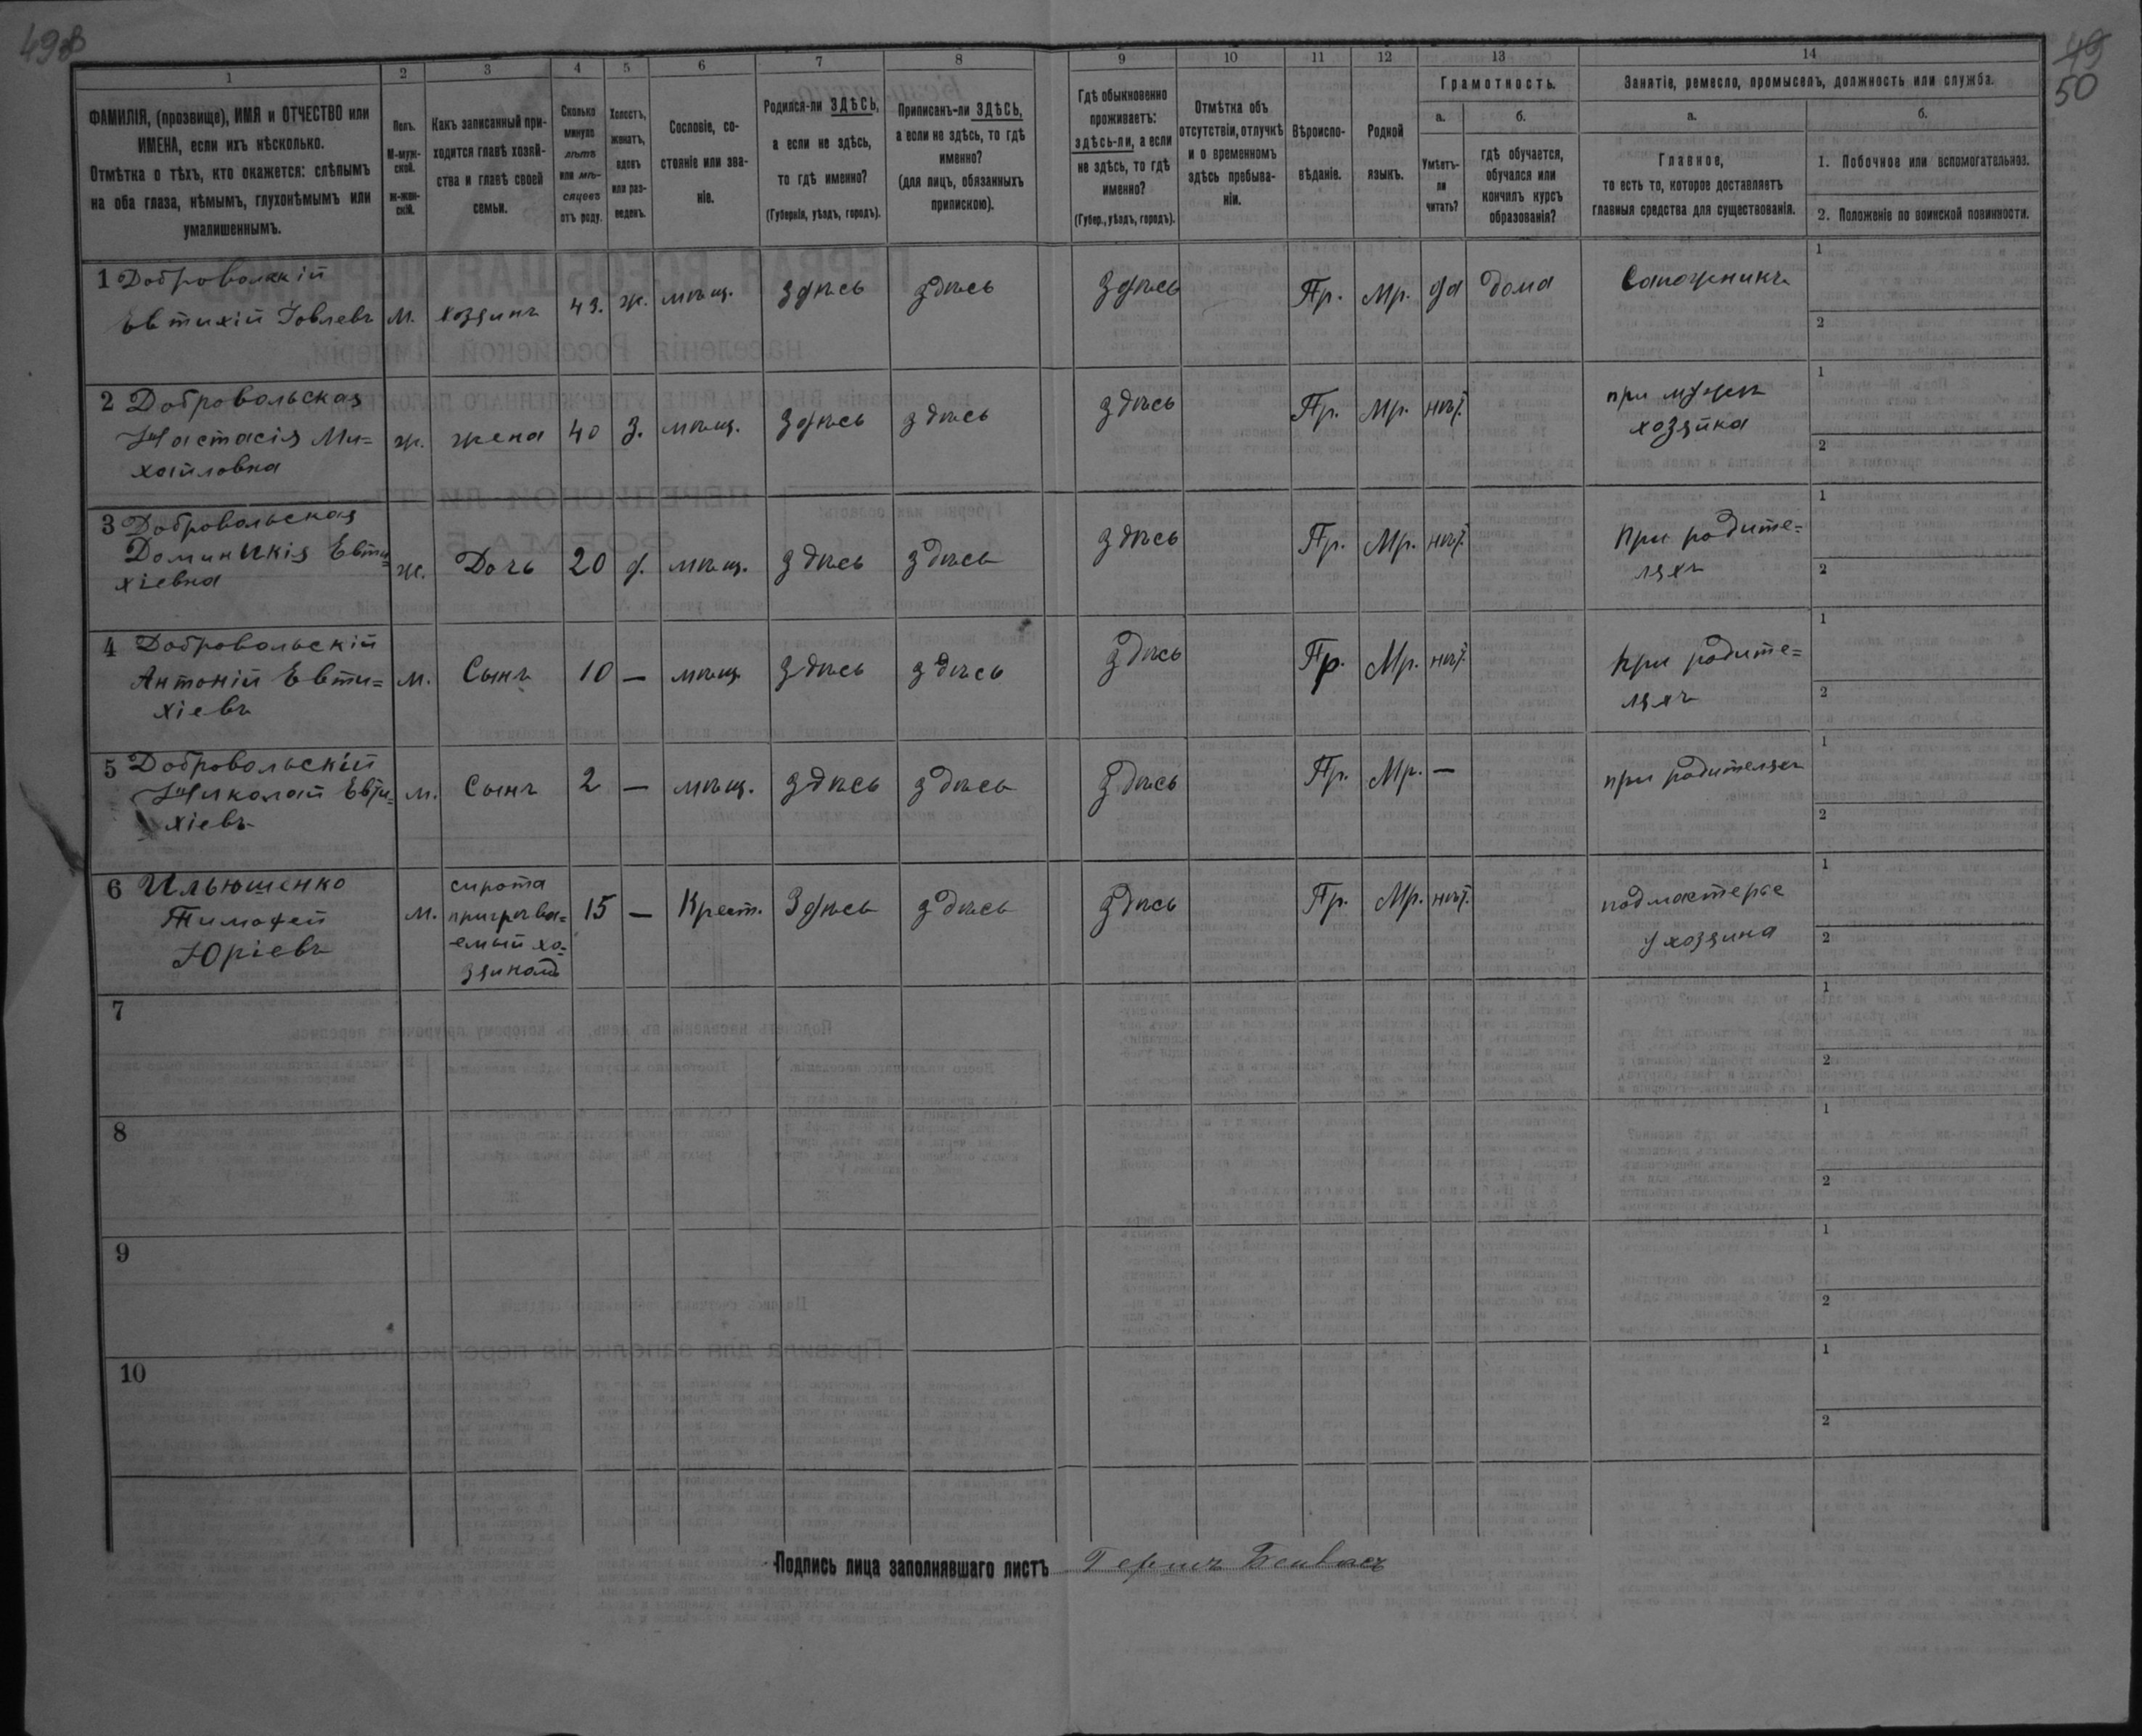 49об
49
50
1 2 3 4 5 6 7 8 9 10 11 12 13 14
ФАМИЛІЯ, (прозвище), ИМЯ и ОТЧЕСТВО или
ИМЕНА, если ихъ нѣсколько.
Отмѣтка о тѣхъ, кто окажется: слѣпымъ
на оба глаза, нѣмымъ, глухонѣмымъ или
умалишеннымъ.
Полъ.
М-муж-
ской.
Ж-жен-
скій.
Какъ записанный при-
ходится главѣ хозяй-
ства и главѣ своей
семьи.
Сколько
минуло
лѣтъ
или мѣ-
сяцевъ
отъ роду.
Холостъ,
женатъ,
вдовъ
или раз-
веденъ.
Сословіе, со-
стояніе или зва-
ніе.
Родился-ли ЗДѢСЬ,
а если не здѣсь,
то гдѣ именно?
(Губернія, уѣздъ, городъ).
Приписанъ-ли ЗДѢСЬ,
а если не здѣсь, то гдѣ
именно?
(для лицъ, обязанныхъ
припискою).
Гдѣ обыкновенно
проживаетъ:
здѣсь-ли, а если
не здѣсь, то гдѣ
именно?
(Губер., уѣздъ, городъ).
Отмѣтка объ
отсутствіи, отлучкѣ
и о временномъ
здѣсь пребыва-
ніи.
Вѣроиспо-
вѣданіе.
Родной
языкъ.
Грамотность.
а.
Умѣетъ-
ли
читать?
б.
гдѣ обучается,
обучался или
кончилъ курсъ
образованія?
Занятіе, ремесло, промыселъ, должность или служба.
а.
Главное,
то есть то, которое доставляетъ
главныя средства для существованія.
б.
1. Побочное или вспомогательное.
2. Положеніе по воинской повинности.
1 Доброволскій
Евтихій Іовлевъ м. хозяинъ 43. ж. мѣщ. здѣсь здѣсь здѣсь Пр. Мр. да дома Сапожникъ
1
2
2 Добровольская
Настасія Ми=
хайловна ж. жена 40 з. мѣщ. здѣсь здѣсь здѣсь Пр. Мр. нѣт. при мужѣ
хозяйка
1
2
3 Добровольская
Доминикія Евти=
хіевна ж. Дочь 20 д. мѣщ. здѣсь здѣсь здѣсь Пр. Мр. нѣт. При родите=
ляхъ
1
2
4 Добровольскій
Антоній Евти=
хіевъ м. Сынъ 10 — мѣщ. здѣсь здѣсь здѣсь Пр. Мр. нѣт. При родите=
ляхъ
1
2
5 Добровольскій
Николай Евти=
хіевъ м. Сынъ 2 — мѣщ. здѣсь здѣсь здѣсь Пр. Мр. — при родителяхъ
1
2
6 Ильюшенко
Тимофей
Юріевъ м. сирота
пригрѣва=
емый хо=
зяиномъ 15 — Крест. Здѣсь здѣсь здѣсь Пр. Мр. нѣт. подмастерье
у хозяина
1
2
7
1
2
8
1
2
9
1
2
10
1
2
Подпись лица заполнявшаго листъ